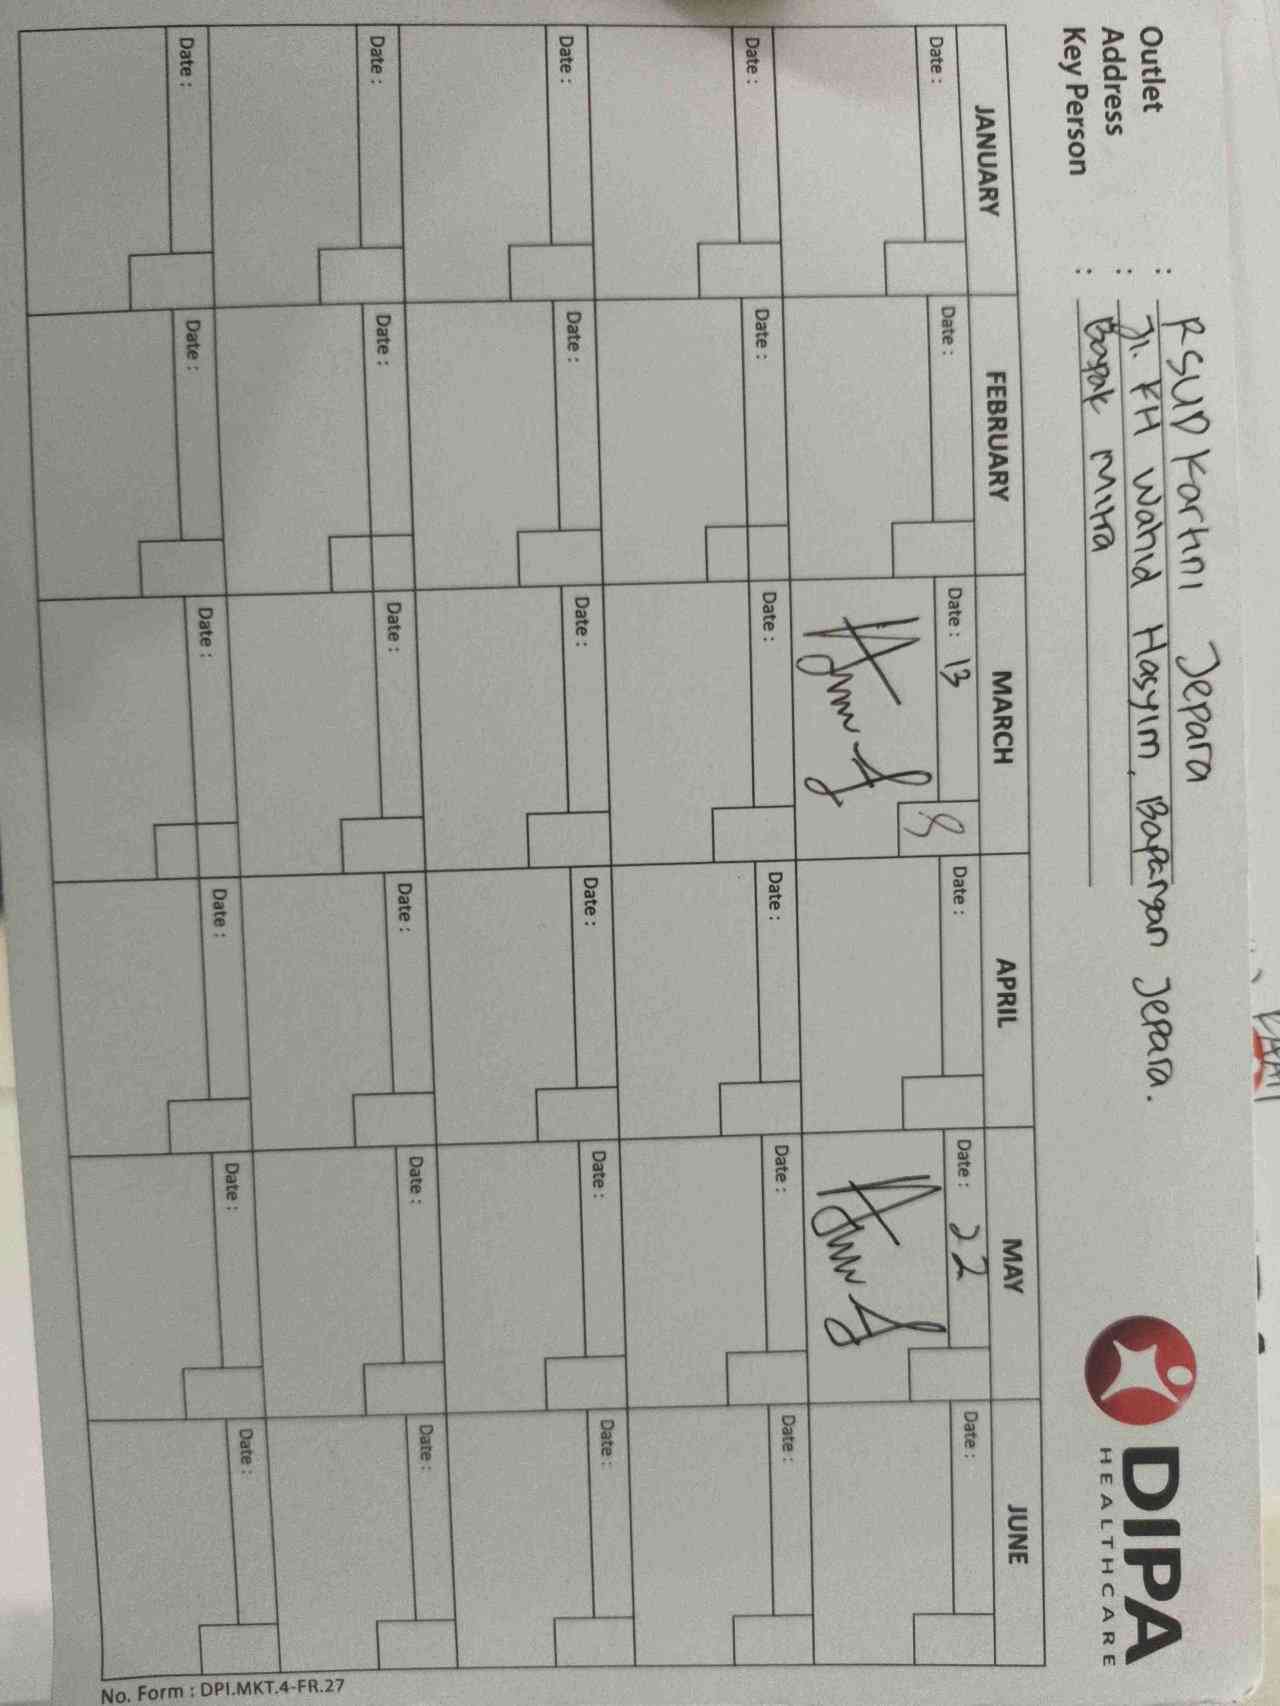 Outlet : RSUD Kartini Jepara
Address : Jl. KH Wahid Hasyim, Bapangan Jepara.
Key Person : Bapak Mitra
DIPA
HEALTHCARE
JANUARY FEBRUARY MARCH APRIL MAY JUNE
Date : Date : Date : 13 Date : Date : 22 Date :
Date : Date : Date : Date : Date : Date :
Date : Date : Date : Date : Date : Date :
Date : Date : Date : Date : Date : Date :
Date : Date : Date : Date : Date : Date :
No. Form : DPI.MKT.4-FR.27